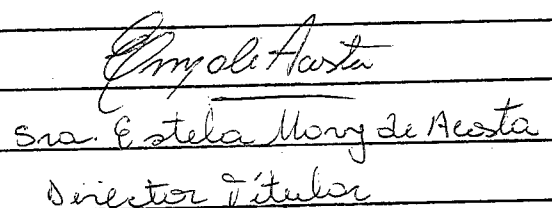 Emy de Acosta
Sra. Estela Mory de Acosta
Director Titular